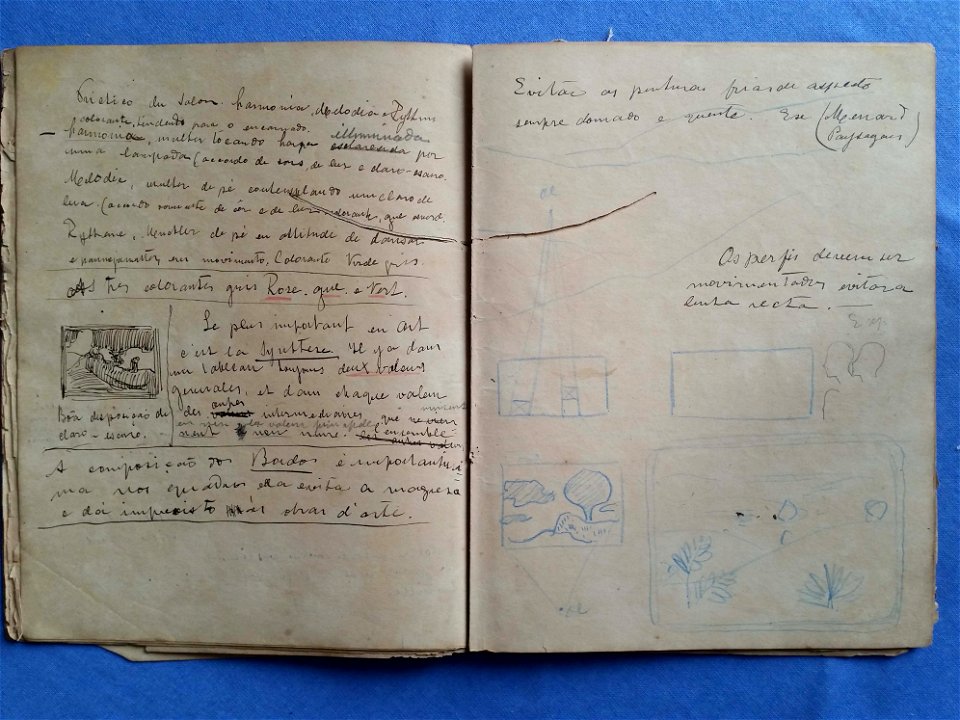 du Salon. harmonia, melodia e Rythme
colorante, tendendo para o encarnado.
harmonia, mulher tocando harpa illuminada
uma lampada (acordo de sons, de luz e claro-escuro.
Melodia, mulher de pé contemplando um claro de
lua. (acordo de côr e de luz. colorante,
Rythme, mulher de pé em attitude de dansar
e em movimento. Colorante Verde gris.
As tres colorantes gris Rose. e Vert.
Le plus important en art
c'est la Synthese. Il y a dans
un tableau toujours deux valeurs
generales, et dans chaque valeur
des autres intermediaires, que
Bôa disposição de
claro-escuro.
A composição dos Bordos é importantissi
ma nos quadros ella evita a magresa
e dá imprevisto ás obras d'arte.
Evitar as pinturas frias de aspecto
sempre dourado e quente. Ex (Menard
Paysages)
Os perfis devem ser
movimentados evitar a
linha recta.
Ex.